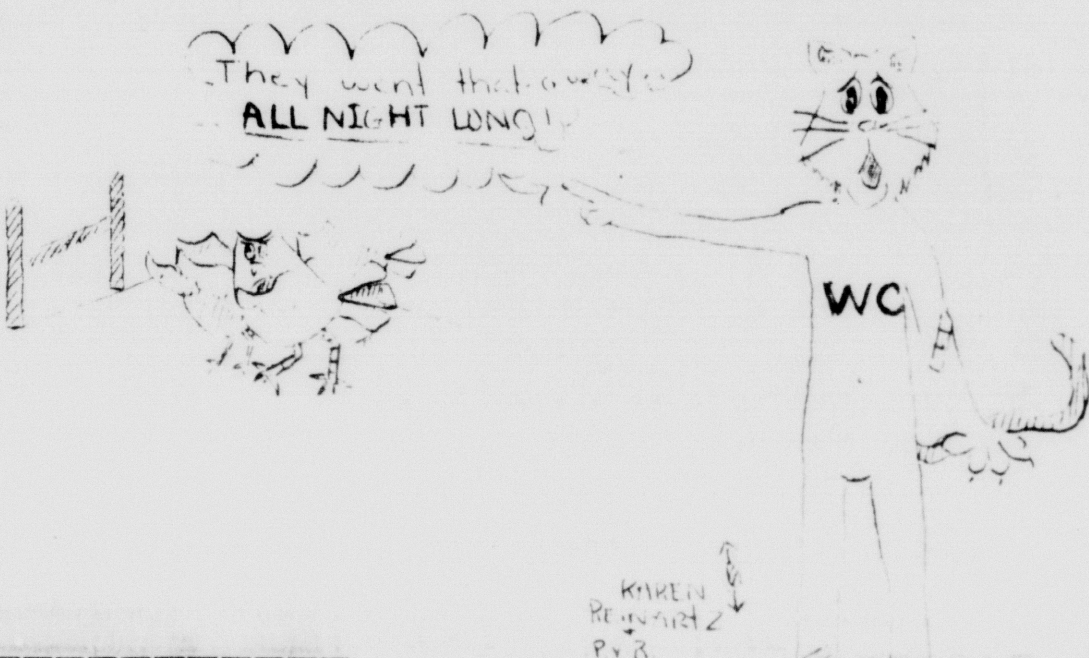 They went that-a-way
ALL NIGHT LONG!
WC
KAREN
REINARTZ